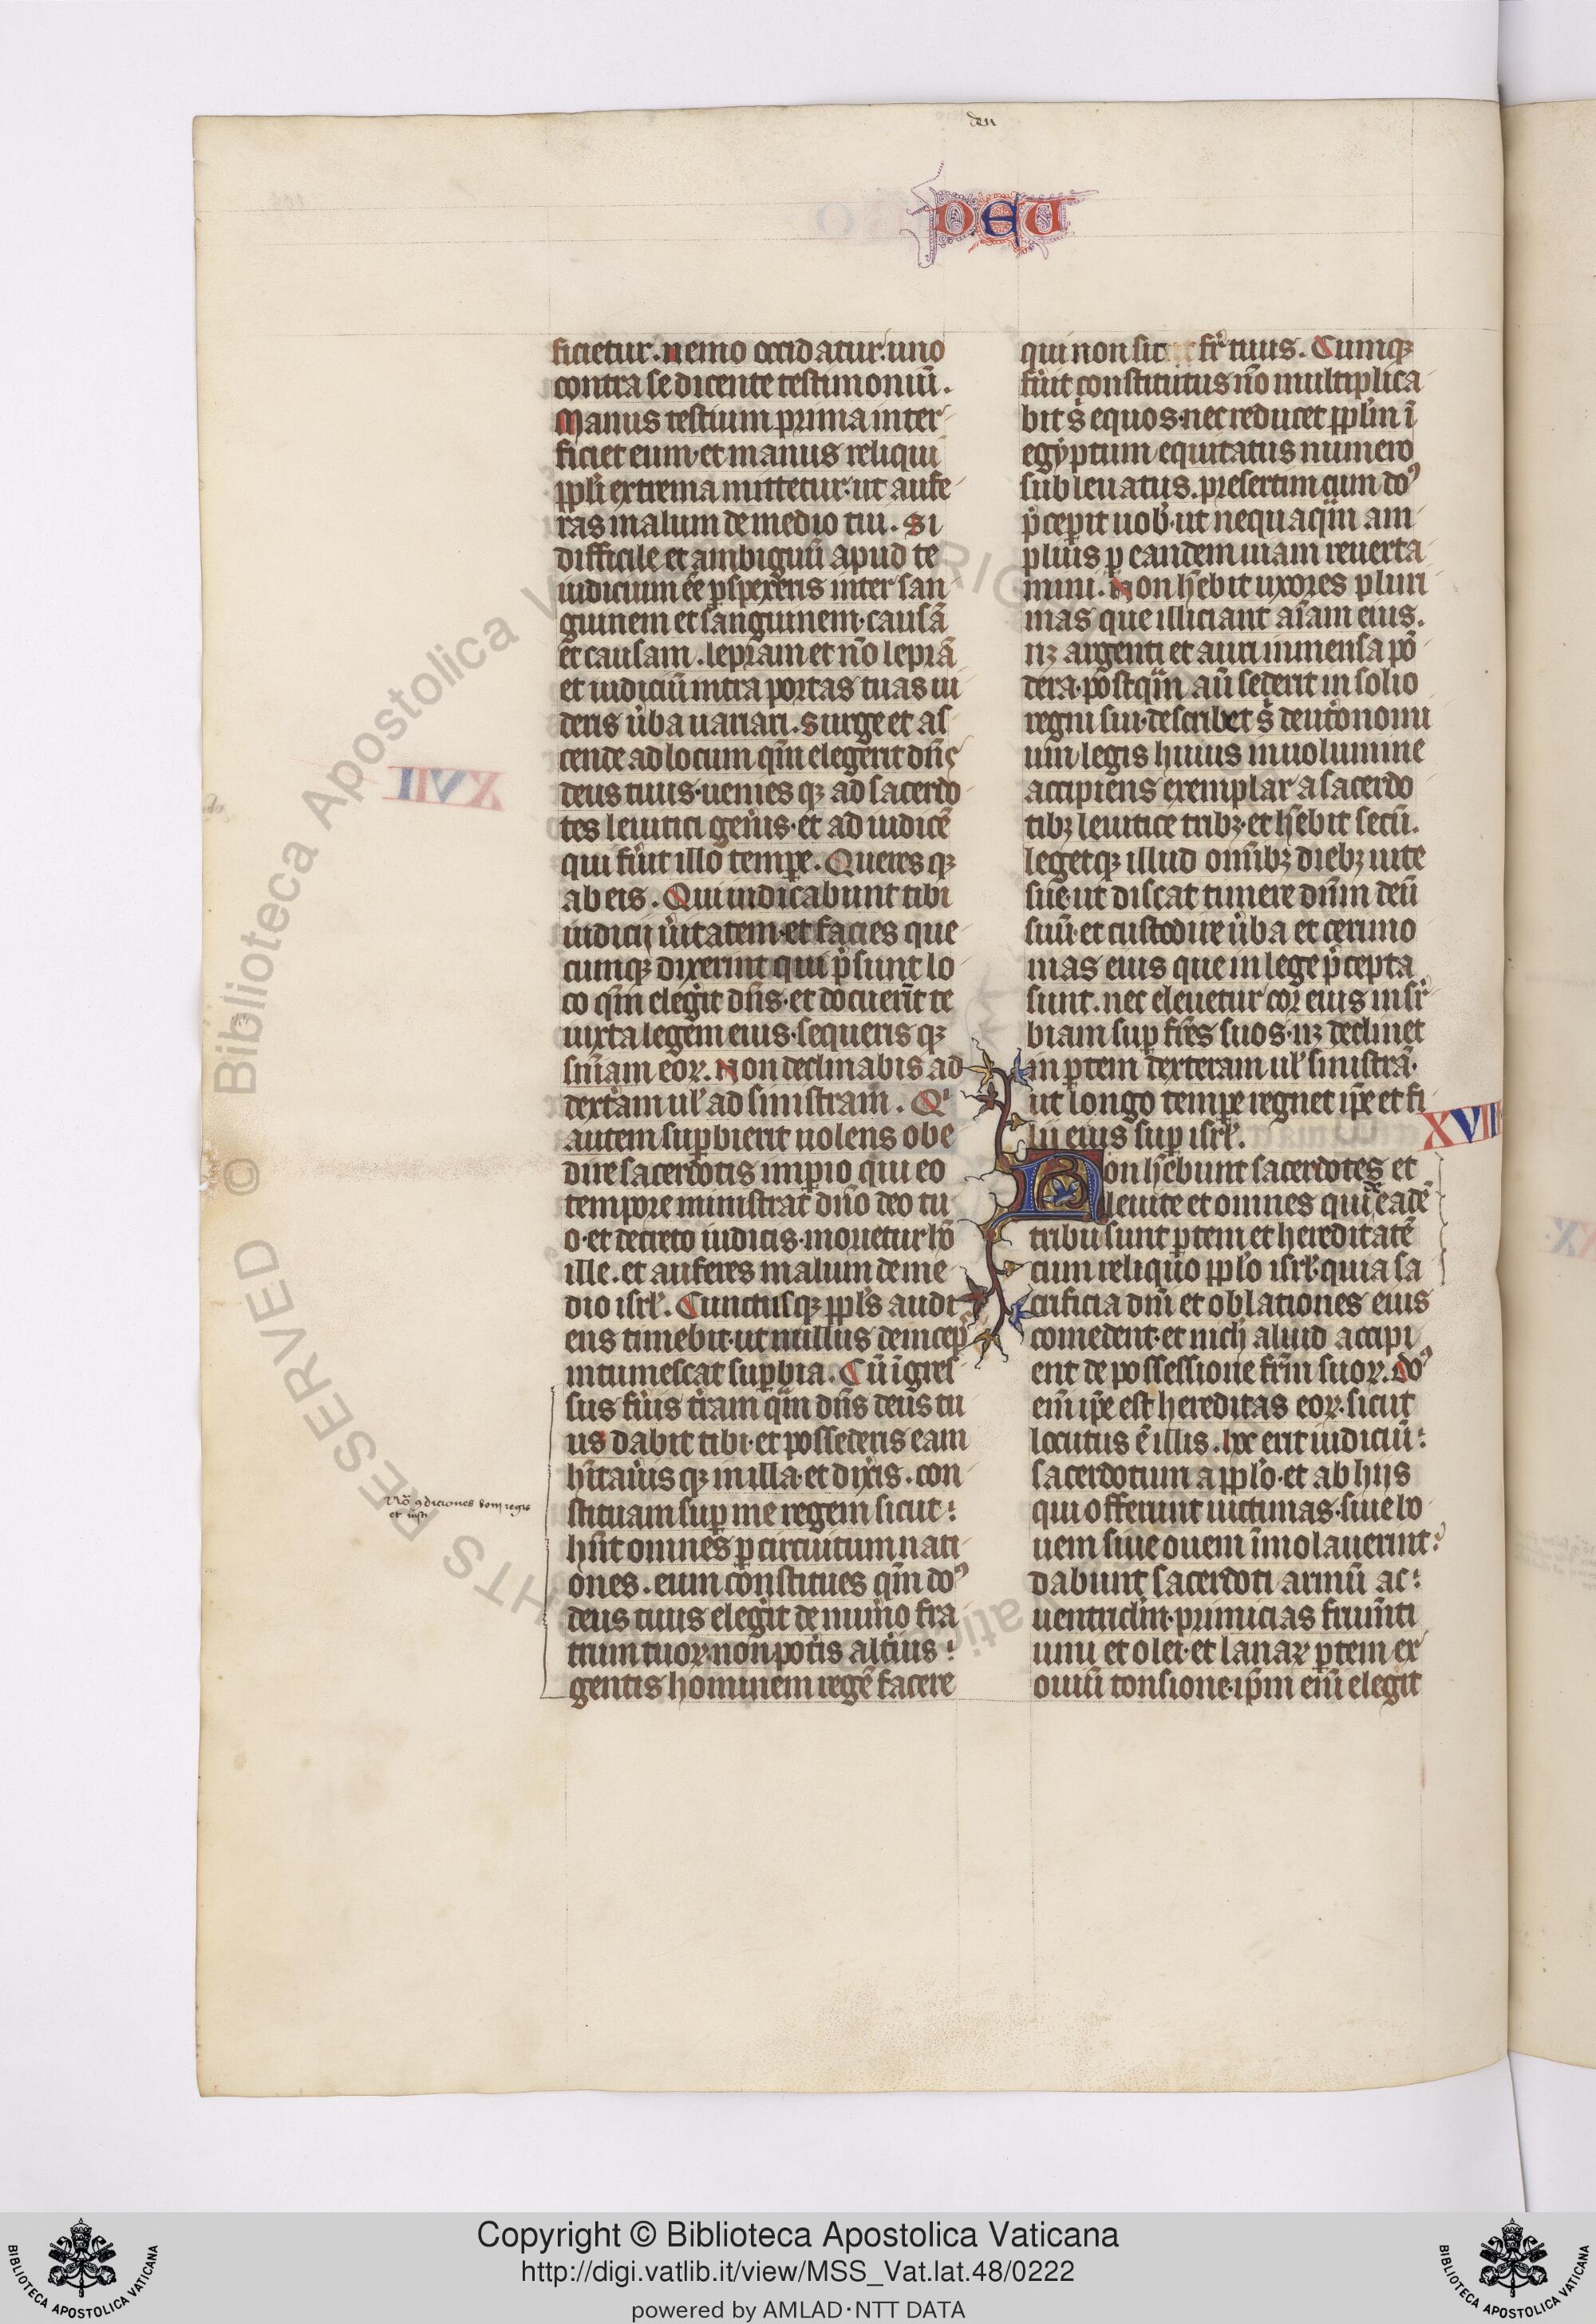 deu
DEU
ficietur. nemo occidatur. uno
contra se dicente testimoniū.
Manus testium prima inter
ficiet eum. et manus reliqui
ppl'i extrema mittetur. ut aufe
ras malum de medio tui. Si
difficile et ambiguū apud te
iudicium eē pspexeris inter san
guinem et sanguinem. causā
et causam. lepram et nō leprā
et iudiciū intra portas tuas ui
deris ūba uariari. Surge et as
cende ad locum qm̄ elegerit dn̄s
deus tuus. uenies qꝫ ad sacerdo
tes leuitici gen̄is. et ad iudicē
qui fūit illo tempe. Queres qꝫ
ab eis. Qui indicabunt tibi
iudicij ūitatem. et facies que
cumqꝫ dixerint qui p̄sunt lo
co qm̄ eleḡit dn̄s. et docuerīt te
iuxta legem eius. sequeris qꝫ
sn̄iam eoꝝ. Non declinabis ad
dextam ul' ad sinistram. Qi
autem supbierit nolens obe
dire sacerdotis impio qui eo
tempore ministrat dn̄o deo tu
o. et decreto iudicis. morietur hō
ille. et auferes malum de me
dio isrl'. Cunctusqꝫ ppl's audi
ens timebit. ut nullus deincep
intumescat supbia. Cū īgres
sus fūis t̄ram qm̄ dn̄s deus tu
us dabit tibi. et possederis eam
hītauis qꝫ in illa. et dix̄is. con
stituam sup me regem sicut
hn̄t omnes p circuitum nati
ones. eum constitues qm̄ doꝰ
deus tuus eleḡit de num̄o fra
trum tuoꝝ. non pot̄is alt̄ius
gentis hominem regē facere
XVII
et iusti
qui non sit fr̄ tuus. Cumqꝫ
fūit constitutus nō multiplica
bit s̄ equos. nec reducet ppl'm ī
egyptum equitatus numero
subleuatus. presertim cum doꝰ
p̄cepit uob'. ut nequaqm̄ am
plius p eandem uiam reuerta
mini. Non hēbit uxores pluri
mas que illiciant aīam eius.
nꝫ argenti et auri inmensa pō
dera. postqm̄ aū sederit in solio
regni sui. describet s̄ deut̄onomi
um legis huius in uolumine
accipiens exemplar a sacerdo
tibꝫ leuitice tribꝫ. et hēbit secū.
legetqꝫ illud omībꝫ diebꝫ uite
sue. ut discat timere dn̄m deū
suū. et custodire ūba et cerimo
nias eius que in lege p̄cepta
sunt. nec eleuetur cor eius in su
biam sup fr̄es suos. nꝫ declinet
in ptem dexteram ul' sinistrā.
ut longo tempe regnet ip̄e et fi
lii eius sup isrl'.
XVIII
Non hēbunt sacerdotes et
leuite et omnes qui de eadē
tribu sunt ptem et hereditatē
cum reliquo ppl'o isrl'. quia sa
crificia dn̄i et oblationes eius
comedent. et nich' aliud accipi
ent de possessione fr̄m suoꝝ. doꝰ
em̄ ip̄e est hereditas eoꝝ. sicut
locutus ē illis. hoc erit iudiciū
sacerdotum a ppl'o. et ab hijs
qui offerunt uictimas. siue bo
uem siue ouem īmolauerint.
dabunt sacerdoti armū ac
uentriclm̄. primicias frumti
uini et olei. et lanaꝝ ptem ex
ouiū tonsione. ip̄m em̄ elegit
© Biblioteca Apostolica Vaticana
RIGHTS RESERVED
Copyright © Biblioteca Apostolica Vaticana
http://digi.vatlib.it/view/MSS_Vat.lat.48/0222
powered by AMLAD·NTT DATA
BIBLIOTECA APOSTOLICA VATICANA
BIBLIOTECA APOSTOLICA VATICANA